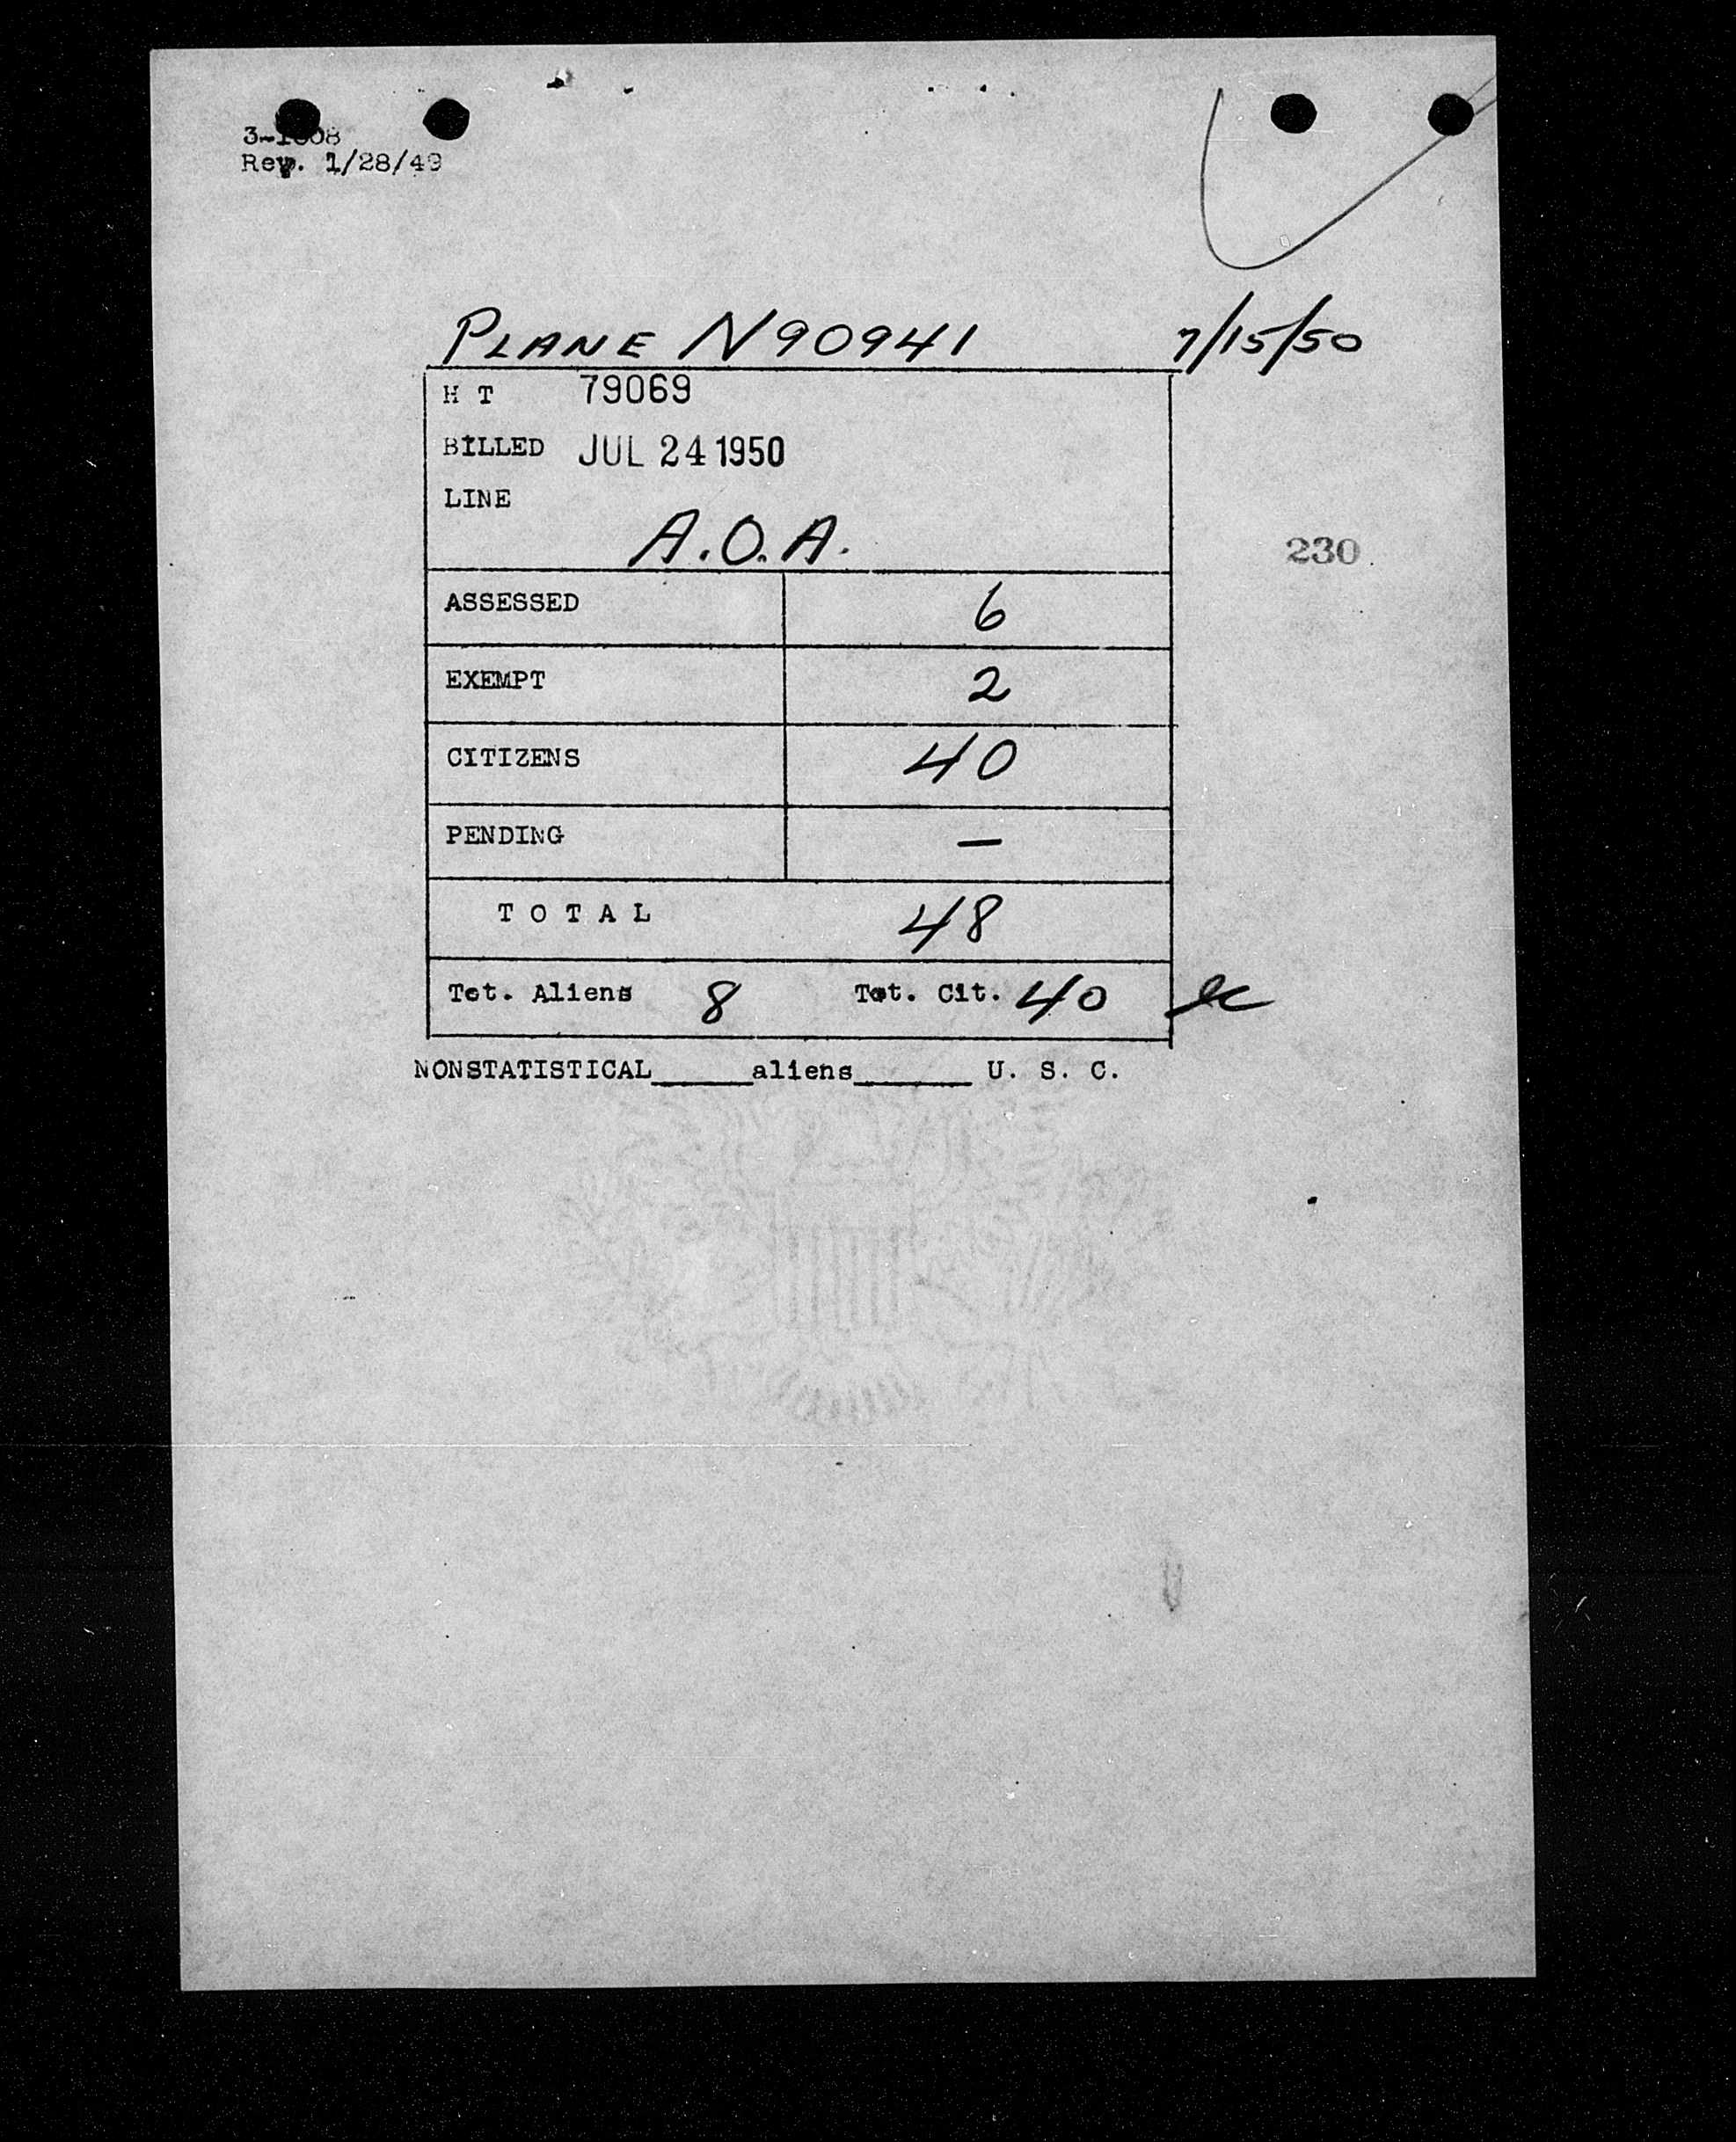 Rev. 1/28/49
PLANE N90941 7/15/50
H T 79069
BILLED JUL 24 1950
LINE
A.O.A.
230
ASSESSED 6
EXEMPT 2
CITIZENS 40
PENDING —
T O T A L 48
Tot. Aliens 8 Tot. Cit. 40
NONSTATISTICAL_____aliens______ U. S. C.